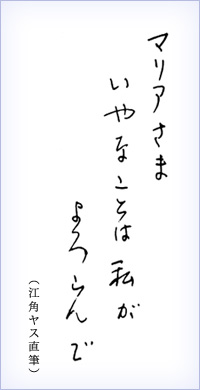 マリアさま
いやなことは私が
よろこんで
（江角ヤス直筆）